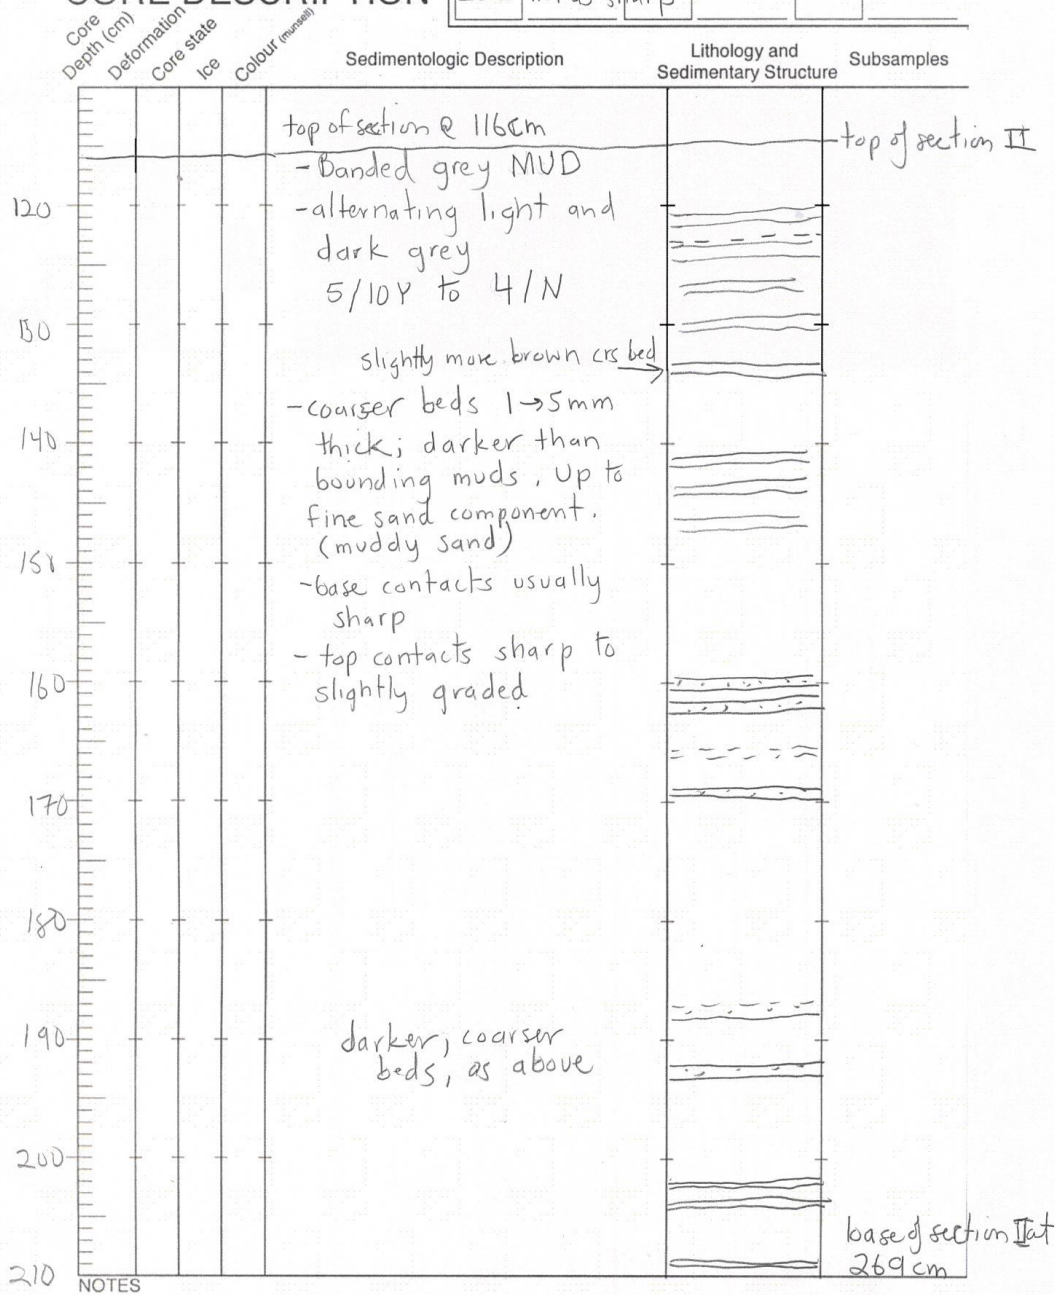 CORE DESCRIPTION
Core
Depth (cm)
Deformation
Core state
Ice
Colour (munsell)
Sedimentologic Description
Lithology and
Sedimentary Structure
Subsamples
top of section @ 116cm
top of section II
- Banded grey MUD
120
- alternating light and
dark grey
5/10Y to 4/N
130
slightly more brown crs bed
- coarser beds 1→5mm
140
thick; darker than
bounding muds. Up to
fine sand component.
(muddy sand)
150
- base contacts usually
sharp
- top contacts sharp to
160
slightly graded
170
180
190
darker, coarser
beds, as above
200
base of section II at
269 cm
210
NOTES